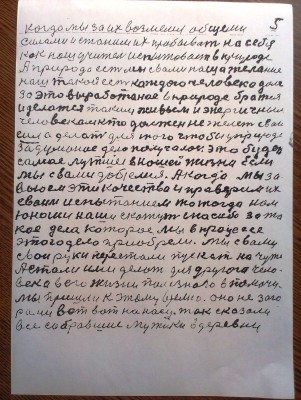 5
когда мы за их возмемся общими
силами и станим их пробыват на себя
как наш учител испытовает в природе
А природа есть мы с вами наша желание
наш такой есть каждого человека дол
за это выработаное в природе братся
и делатся таким живым и энергичным
человеком кто должен не жалет свои
сил а делат для того чтобы в природе
Задуманое дело получалос. Это будет
самое лутшее в нашей жизни если
мы с вами добемся. А когда мы за
воюем эти качество и проверим их
своим испытанием то тогда нам
юноши наши скажут спасибо за та
кое дела которое мы в процессе
этого дело приобрели. мы с вами
свои руки перестали пускат на чужо
А стали ими делат для другого чело-
века в его жизни полезного в помочи.
мы пришли к этому время. оно не за го
рами вот вот на носу. так сказали
все собравшие мужики з деревни